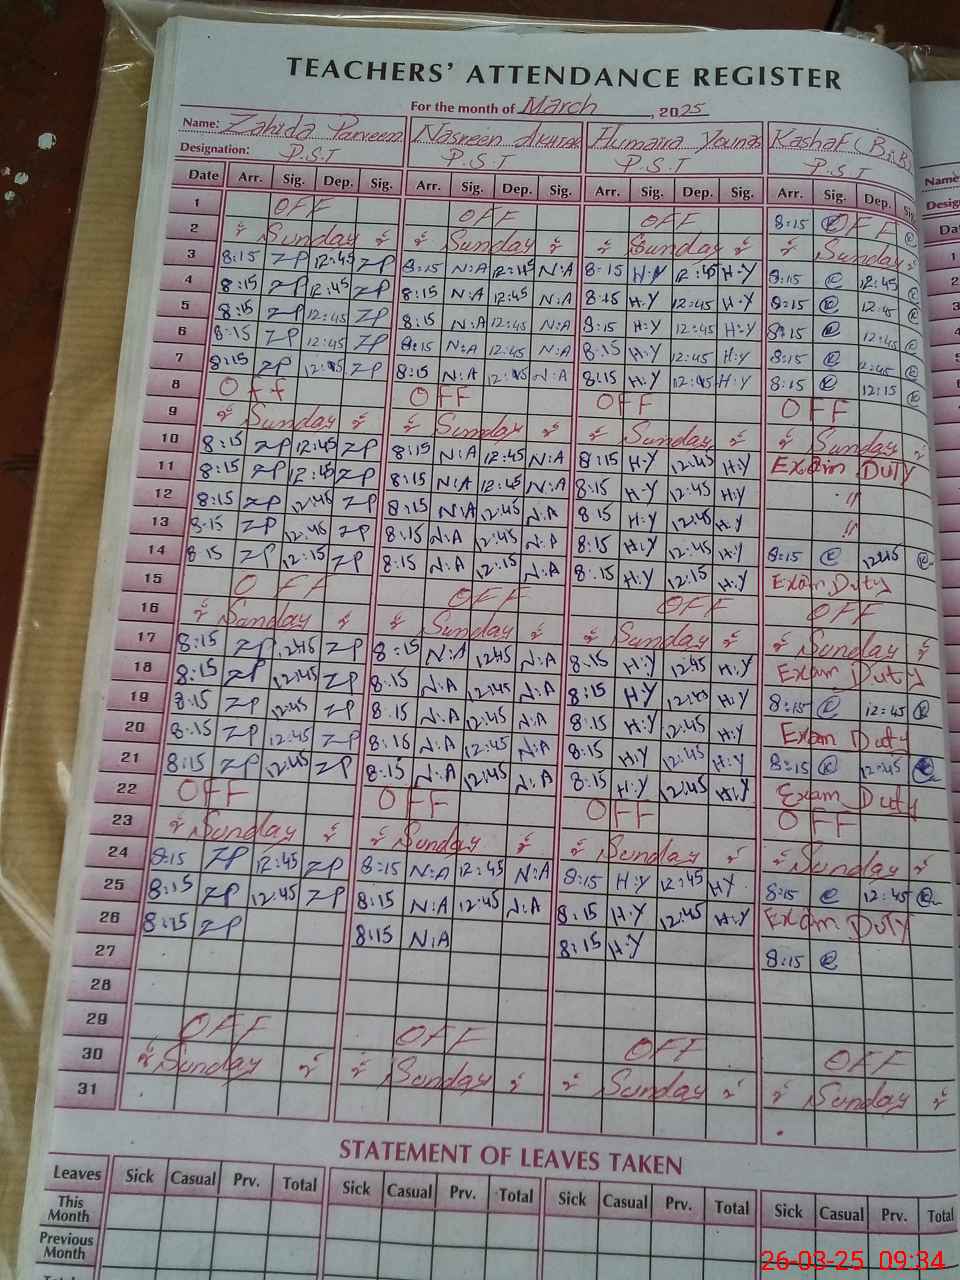 TEACHERS' ATTENDANCE REGISTER
For the month of March, 2025
Name: Zahida Parveen Nasreen Akhtar Humaira Younas Kashaf (B.B)
Designation: P.S.T P.S.T P.S.T P.S.T
Name
Desig
Date Arr. Sig. Dep. Sig. Arr. Sig. Dep. Sig. Arr. Sig. Dep. Sig. Arr. Sig. Dep. Sig.
1 OFF OFF OFF 8:15 OFF
2 Sunday Sunday Sunday Sunday
3 8:15 ZP 12:45 ZP 8:15 N:A 12:45 N:A 8:15 H:Y 12:45 H:Y 8:15 e 12:45 e
4 8:15 ZP 12:45 ZP 8:15 N:A 12:45 N:A 8:15 H:Y 12:45 H:Y 8:15 e 12:45 e
5 8:15 ZP 12:45 ZP 8:15 N:A 12:45 N:A 8:15 H:Y 12:45 H:Y 8:15 e 12:45 e
6 8:15 ZP 12:45 ZP 8:15 N:A 12:45 N:A 8:15 H:Y 12:45 H:Y 8:15 e 12:45 e
7 8:15 ZP 12:15 ZP 8:15 N:A 12:15 N:A 8:15 H:Y 12:15 H:Y 8:15 e 12:15 e
8 Off OFF OFF OFF
9 Sunday Sunday Sunday Sunday
10 8:15 ZP 12:45 ZP 8:15 N:A 12:45 N:A 8:15 H:Y 12:45 H:Y Exam Duty
11 8:15 ZP 12:45 ZP 8:15 N:A 12:45 N:A 8:15 H:Y 12:45 H:Y "
12 8:15 ZP 12:45 ZP 8:15 N:A 12:45 N:A 8:15 H:Y 12:45 H:Y "
13 8:15 ZP 12:45 ZP 8:15 N:A 12:45 N:A 8:15 H:Y 12:45 H:Y 8:15 e 12:45 e
14 8:15 ZP 12:15 ZP 8:15 N:A 12:15 N:A 8:15 H:Y 12:15 H:Y Exam Duty
15 OFF OFF OFF OFF
16 Sunday Sunday Sunday Sunday
17 8:15 ZP 12:45 ZP 8:15 N:A 12:45 N:A 8:15 H:Y 12:45 H:Y Exam Duty
18 8:15 ZP 12:45 ZP 8:15 N:A 12:45 N:A 8:15 H:Y 12:45 H:Y 8:15 e 12:45 e
19 8:15 ZP 12:45 ZP 8:15 N:A 12:45 N:A 8:15 H:Y 12:45 H:Y Exam Duty
20 8:15 ZP 12:45 ZP 8:15 N:A 12:45 N:A 8:15 H:Y 12:45 H:Y 8:15 e 12:45
21 8:15 ZP 12:45 ZP 8:15 N:A 12:45 N:A 8:15 H:Y 12:45 H:Y Exam Duty
22 OFF OFF OFF OFF
23 Sunday Sunday Sunday Sunday
24 8:15 ZP 12:45 ZP 8:15 N:A 12:45 N:A 8:15 H:Y 12:45 H:Y 8:15 e 12:45 e
25 8:15 ZP 12:45 ZP 8:15 N:A 12:45 N:A 8:15 H:Y 12:45 H:Y Exam Duty
26 8:15 ZP 8:15 N:A 8:15 H:Y 8:15 e
27
28
29 OFF OFF OFF OFF
30 Sunday Sunday Sunday Sunday
31
STATEMENT OF LEAVES TAKEN
Leaves Sick Casual Prv. Total Sick Casual Prv. Total Sick Casual Prv. Total Sick Casual Prv. Total
This Month
Previous Month
26-03-25 09:34